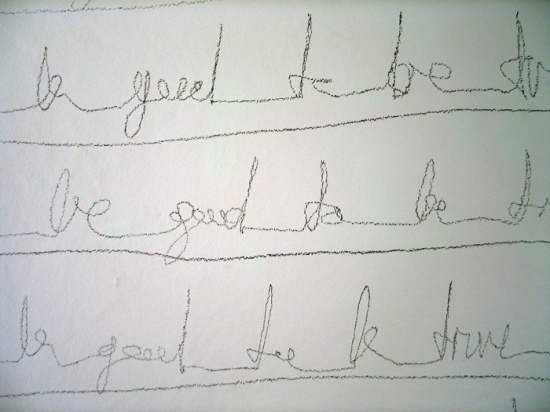 be good to be tr
be good to be t
be good to be true